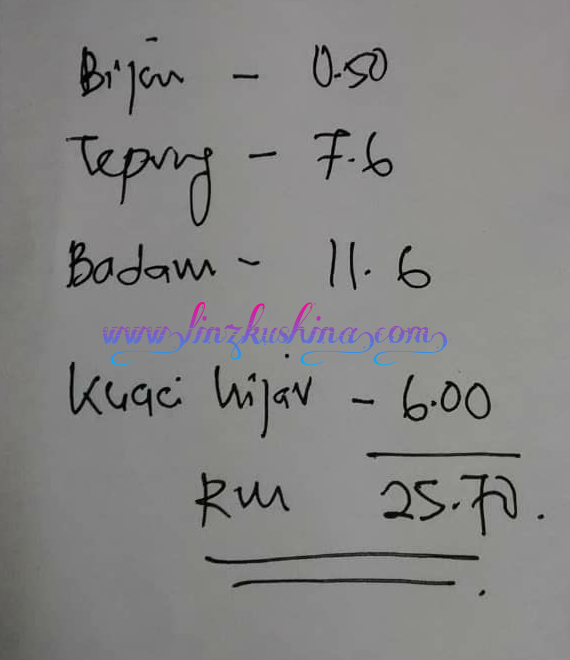 Bijan - 0.50
Tepung - 7.6
Badam - 11.6
www.linzkushina.com
Kuaci hijau - 6.00
RM 25.70.